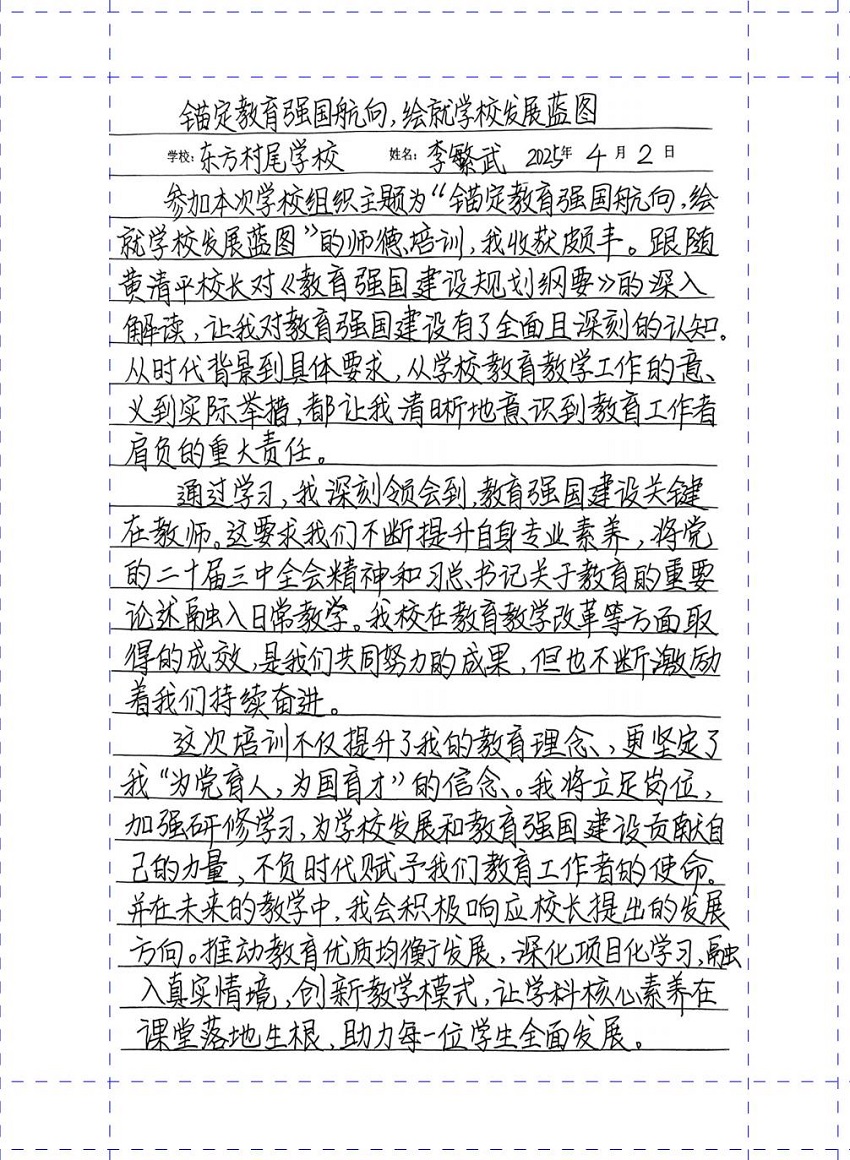 锚定教育强国航向,绘就学校发展蓝图
学校:东方村尾学校 姓名:李繁武 2025年 4 月 2 日
参加本次学校组织主题为“锚定教育强国航向,绘
就学校发展蓝图”的师德培训,我收获颇丰。跟随
黄清平校长对《教育强国建设规划纲要》的深入
解读,让我对教育强国建设有了全面且深刻的认知。
从时代背景到具体要求,从学校教育教学工作的意
义到实际举措,都让我清晰地意识到教育工作者
肩负的重大责任。
通过学习,我深刻领会到,教育强国建设关键
在教师。这要求我们不断提升自身专业素养,将党
的二十届三中全会精神和习总书记关于教育的重要
论述融入日常教学。我校在教育教学改革等方面取
得的成效,是我们共同努力的成果,但也不断激励
着我们持续奋进。
这次培训不仅提升了我的教育理念,更坚定了
我“为党育人,为国育才”的信念。我将立足岗位,
加强研修学习,为学校发展和教育强国建设贡献自
己的力量,不负时代赋予我们教育工作者的使命。
并在未来的教学中,我会积极响应校长提出的发展
方向。推动教育优质均衡发展,深化项目化学习,融
入真实情境,创新教学模式,让学科核心素养在
课堂落地生根,助力每一位学生全面发展。